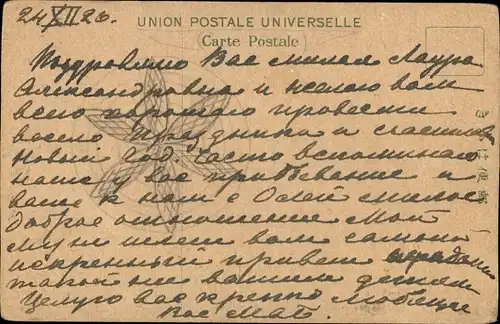 24 XII 26.
UNION POSTALE UNIVERSELLE
Carte Postale
Поздравляю Вас милая Лаура
Александровна и желаю вам
всего хорошаго провести
весело праздники и счастливо
Новый Год. Часто вспоминаю
наше у вас пребывание и
ваше к нам с Осей милое
доброе отношение Мой
муж шлет вам самый
искренный привет
вашим детям
Целую вас крепко любящая
вас
きかは便郵